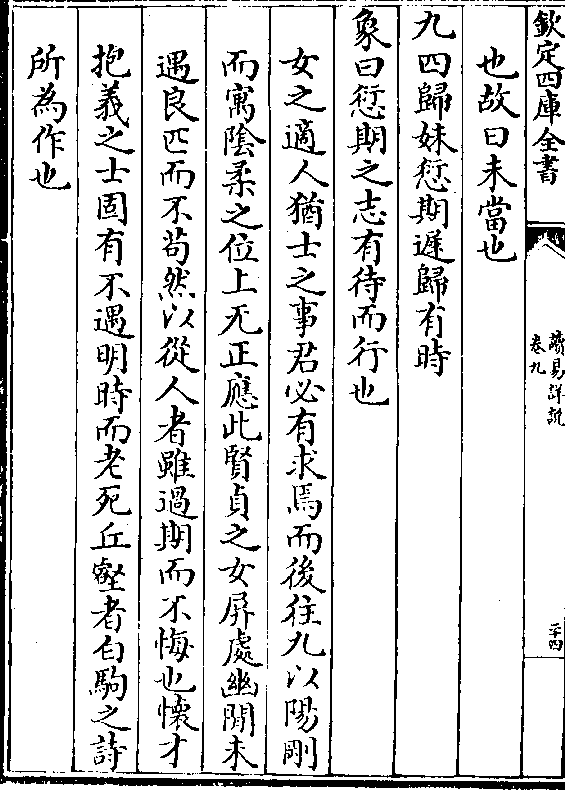 欽定四庫全書
讀易詳說
卷九
二十四
也故曰未當也
九四歸妹愆期遲歸有時
象曰愆期之志有待而行也
女之適人猶士之事君必有求焉而後往九以陽剛
而寓陰柔之位上无正應此賢貞之女屏處幽閒未
遇良匹而不苟然以從人者雖過期而不悔也懷才
抱義之士固有不遇明時而老死丘壑者白駒之詩
所為作也